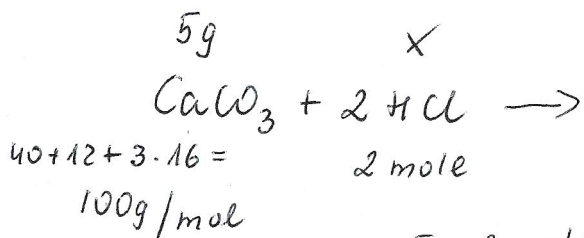 5g x
CaCO₃ + 2 HCl →
40+12+3·16= 2 mole
100g/mol